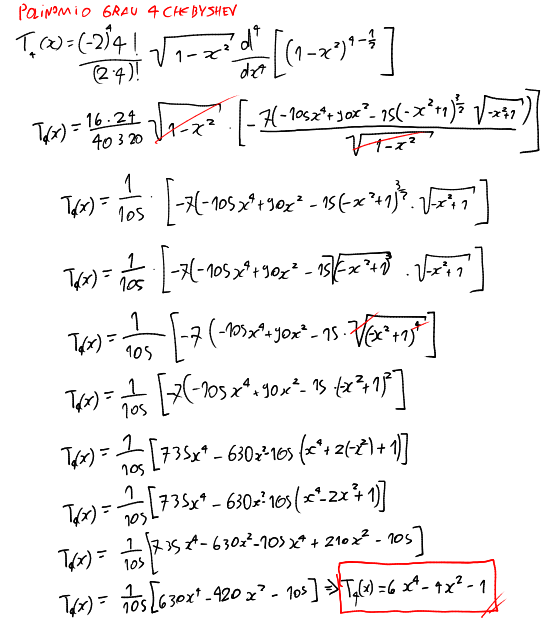 POLINOMIO GRAU 4 CHEBYSHEV
T₄(x) = (-2)⁴4! / (2·4)! √(1-x²) d⁴/dx⁴ [(1-x²)^(4-1/2)]
T₄(x) = 16·24 / 40320 √(1-x²) · [-7(-105x⁴+90x²-15(-x²+1)^(3/2) √(-x²+1)) / √(1-x²)]
T₄(x) = 1/105 · [-7(-105x⁴+90x²-15(-x²+1)^(3/2) · √(-x²+1)]
T₄(x) = 1/105 · [-7(-105x⁴+90x²-15√(-x²+1)³ · √(-x²+1)]
T₄(x) = 1/105 [-7(-105x⁴+90x²-15·√(-x²+1)⁴]
T₄(x) = 1/105 [-7(-105x⁴+90x²-15·(-x²+1)²]
T₄(x) = 1/105 [735x⁴-630x²-105(x⁴+2(-x²)+1)]
T₄(x) = 1/105 [735x⁴-630x²-105(x⁴-2x²+1)]
T₄(x) = 1/105 [735x⁴-630x²-105x⁴+210x²-105]
T₄(x) = 1/105 [630x⁴-420x²-105] ⇒ T₄(x)=6x⁴-4x²-1